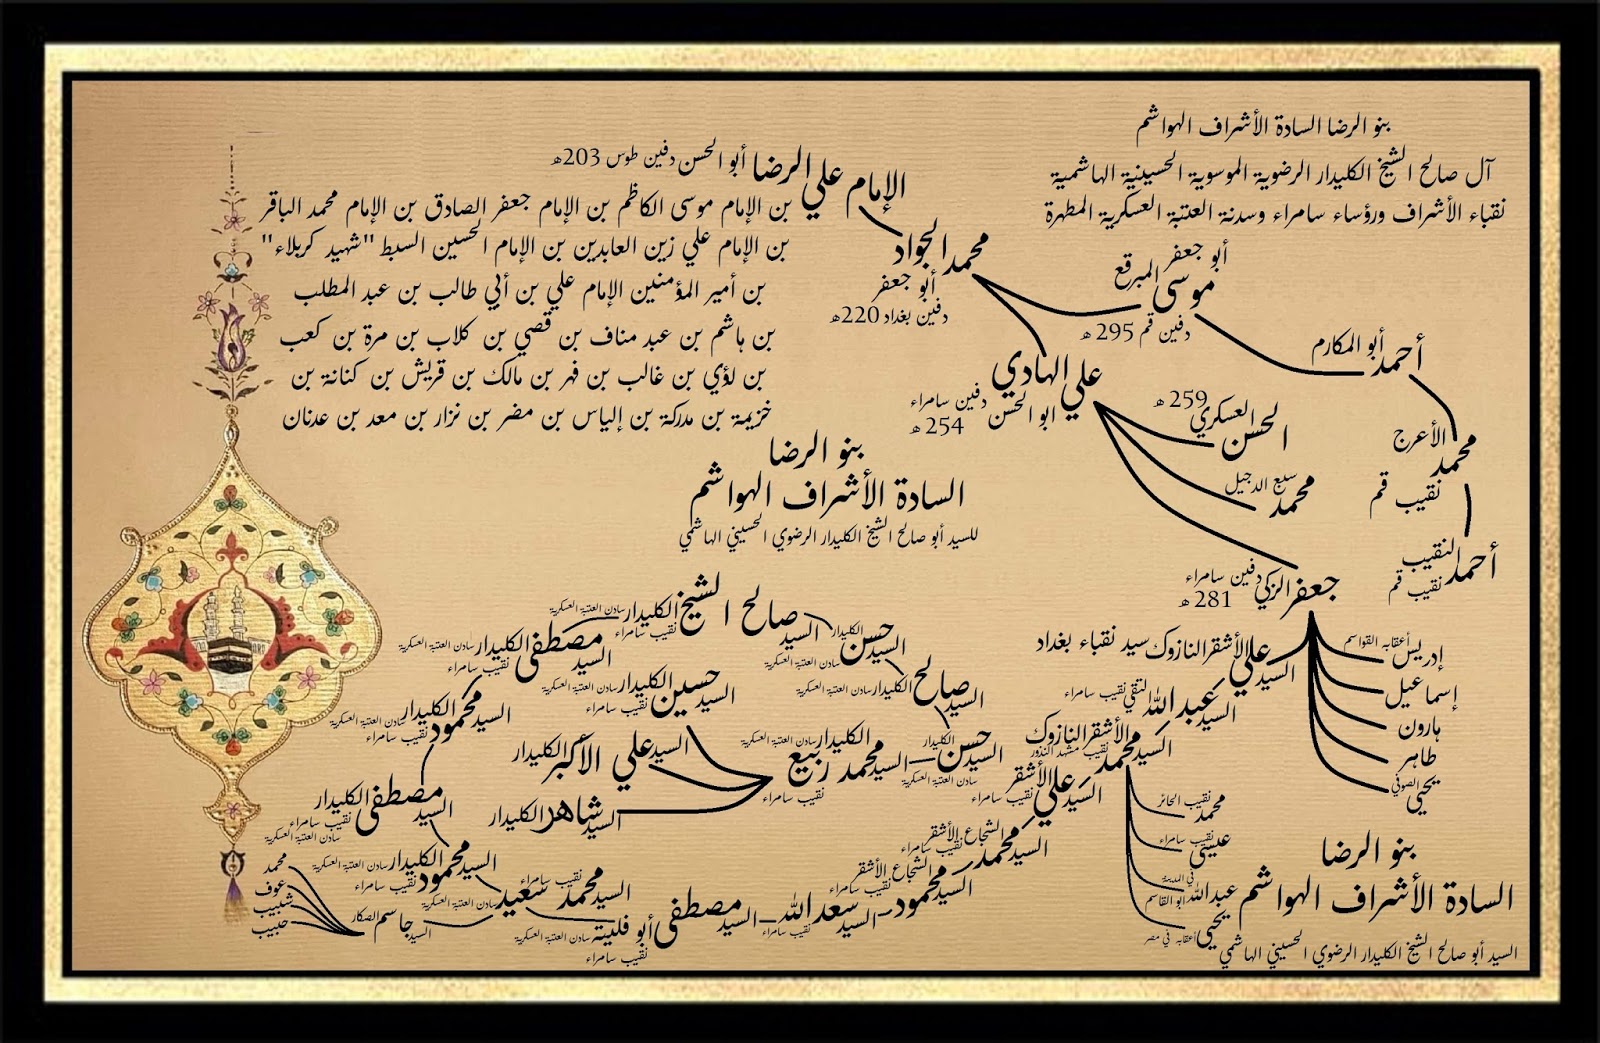 بنو الرضا السادة الأشراف الهواشم
آل صالح الشيخ الكليدار الرضوية الموسوية الحسينية الهاشمية
نقباء الأشراف ورؤساء سامراء وسدنة العتبة العسكرية المطهرة
الإمام علي الرضا أبو الحسن دفين طوس 203هـ
بن الإمام موسى الكاظم بن الإمام جعفر الصادق بن الإمام محمد الباقر
بن الإمام علي زين العابدين بن الإمام الحسين السبط "شهيد كربلاء"
بن أمير المؤمنين الإمام علي بن أبي طالب بن عبد المطلب
بن هاشم بن عبد مناف بن قصي بن كلاب بن مرة بن كعب
بن لؤي بن غالب بن فهر بن مالك بن قريش بن كنانة بن
خزيمة بن مدركة بن إلياس بن مضر بن نزار بن معد بن عدنان
بنو الرضا
السادة الأشراف الهواشم
للسيد أبو صالح الشيخ الكليدار الرضوي الحسيني الهاشمي
محمد الجواد
أبو جعفر
دفين بغداد 220هـ
أبو جعفر
موسى المبرقع
دفين قم 295هـ
أحمد أبو المكارم
محمد الأعرج
نقيب قم
أحمد النقيب
نقيب قم
علي الهادي
ابو الحسن دفين سامراء
254 هـ
الحسن العسكري 259 هـ
محمد سبع الدجيل
جعفر الزكي دفين سامراء
281 هـ
إدريس أعقابه القواسم
إسماعيل
هارون
طاهر
يحيى الصوفي
السيد علي الأشقر النازوك سيد نقباء بغداد
السيد عبد الله التقي نقيب سامراء
السيد محمد الأشقر النازوك
نقيب مشهد النذور
محمد نقيب الحائر
عيسى نقيب سامراء
عبد الله ابو القاسم في المدينة
يحيى أعقابه في مصر
السيد علي الأشقر
نقيب سامراء
السيد محمد الشجاع الأشقر
نقيب سامراء
السيد محمود الشجاع الأشقر
نقيب سامراء
السيد سعد الله
نقيب سامراء
السيد مصطفى أبو فليتة سادن العتبة العسكرية
نقيب سامراء
السيد محمد سعيد نقيب سامراء
سادن العتبة العسكرية
السيد جاسم الصكار
محمد
عوف
شبيب
حبيب
السيد محمود الكليدار سادن العتبة العسكرية
نقيب سامراء
السيد مصطفى الكليدار
نقيب سامراء
سادن العتبة العسكرية
السيد محمود الكليدار سادن العتبة العسكرية
نقيب سامراء
السيد مصطفى الكليدار سادن العتبة العسكرية
نقيب سامراء
السيد صالح الشيخ الكليدار سادن العتبة العسكرية
نقيب سامراء
السيد حسن الكليدار
سادن العتبة العسكرية
السيد صالح الكليدار سادن العتبة العسكرية
السيد حسن الكليدار
سادن العتبة العسكرية
السيد محمد ربيع الكليدار سادن العتبة العسكرية
نقيب سامراء
السيد حسين الكليدار سادن العتبة العسكرية
نقيب سامراء
السيد علي الأكبر الكليدار
السيد شاهر الكليدار
بنو الرضا
السادة الأشراف الهواشم
السيد أبو صالح الشيخ الكليدار الرضوي الحسيني الهاشمي